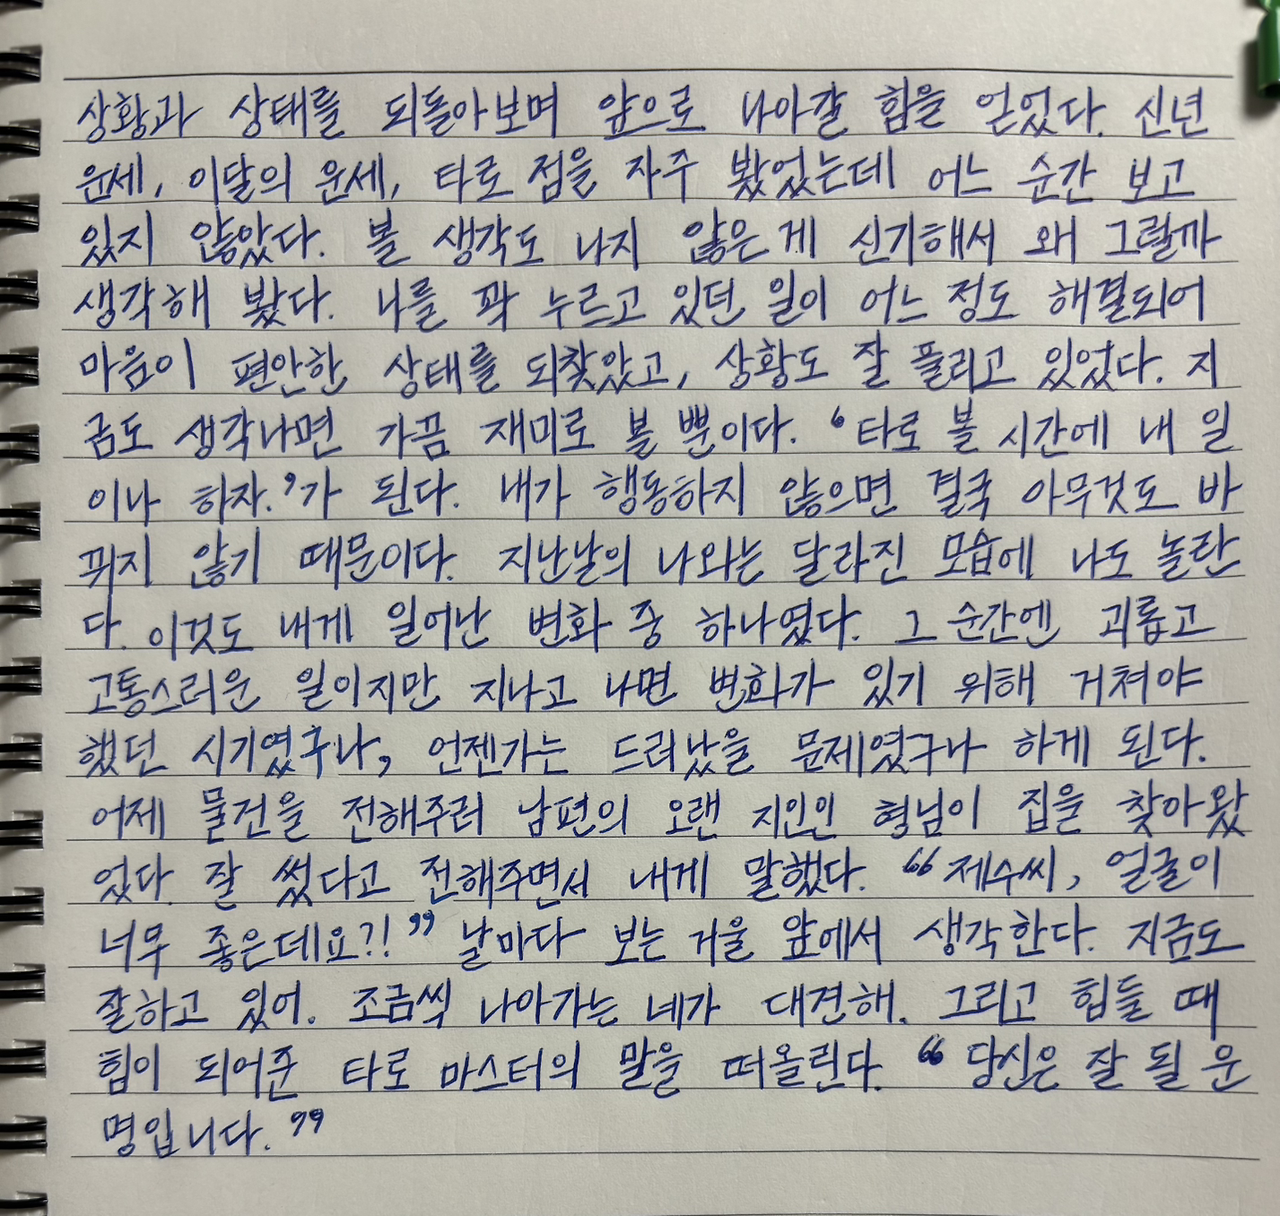 상황과 상태를 되돌아보며 앞으로 나아갈 힘을 얻었다. 신년
운세, 이달의 운세, 타로 점을 자주 봤었는데 어느 순간 보고
있지 않았다. 볼 생각도 나지 않은 게 신기해서 왜 그럴까
생각해 봤다. 나를 꽉 누르고 있던 일이 어느 정도 해결되어
마음이 편안한 상태를 되찾았고, 상황도 잘 풀리고 있었다. 지
금도 생각나면 가끔 재미로 볼 뿐이다. ‘타로 볼 시간에 내 일
이나 하자.’가 된다. 내가 행동하지 않으면 결국 아무것도 바
뀌지 않기 때문이다. 지난날의 나와는 달라진 모습에 나도 놀란
다. 이것도 내게 일어난 변화 중 하나였다. 그 순간엔 괴롭고
고통스러운 일이지만 지나고 나면 변화가 있기 위해 거쳐야
했던 시기였구나, 언젠가는 드러났을 문제였구나 하게 된다.
어제 물건을 전해주러 남편의 오랜 지인인 형님이 집을 찾아왔
었다. 잘 썼다고 전해주면서 내게 말했다. “제수씨, 얼굴이
너무 좋은데요?!” 날마다 보는 거울 앞에서 생각한다. 지금도
잘하고 있어. 조금씩 나아가는 네가 대견해. 그리고 힘들 때
힘이 되어준 타로 마스터의 말을 떠올린다. “당신은 잘 될 운
명입니다.”